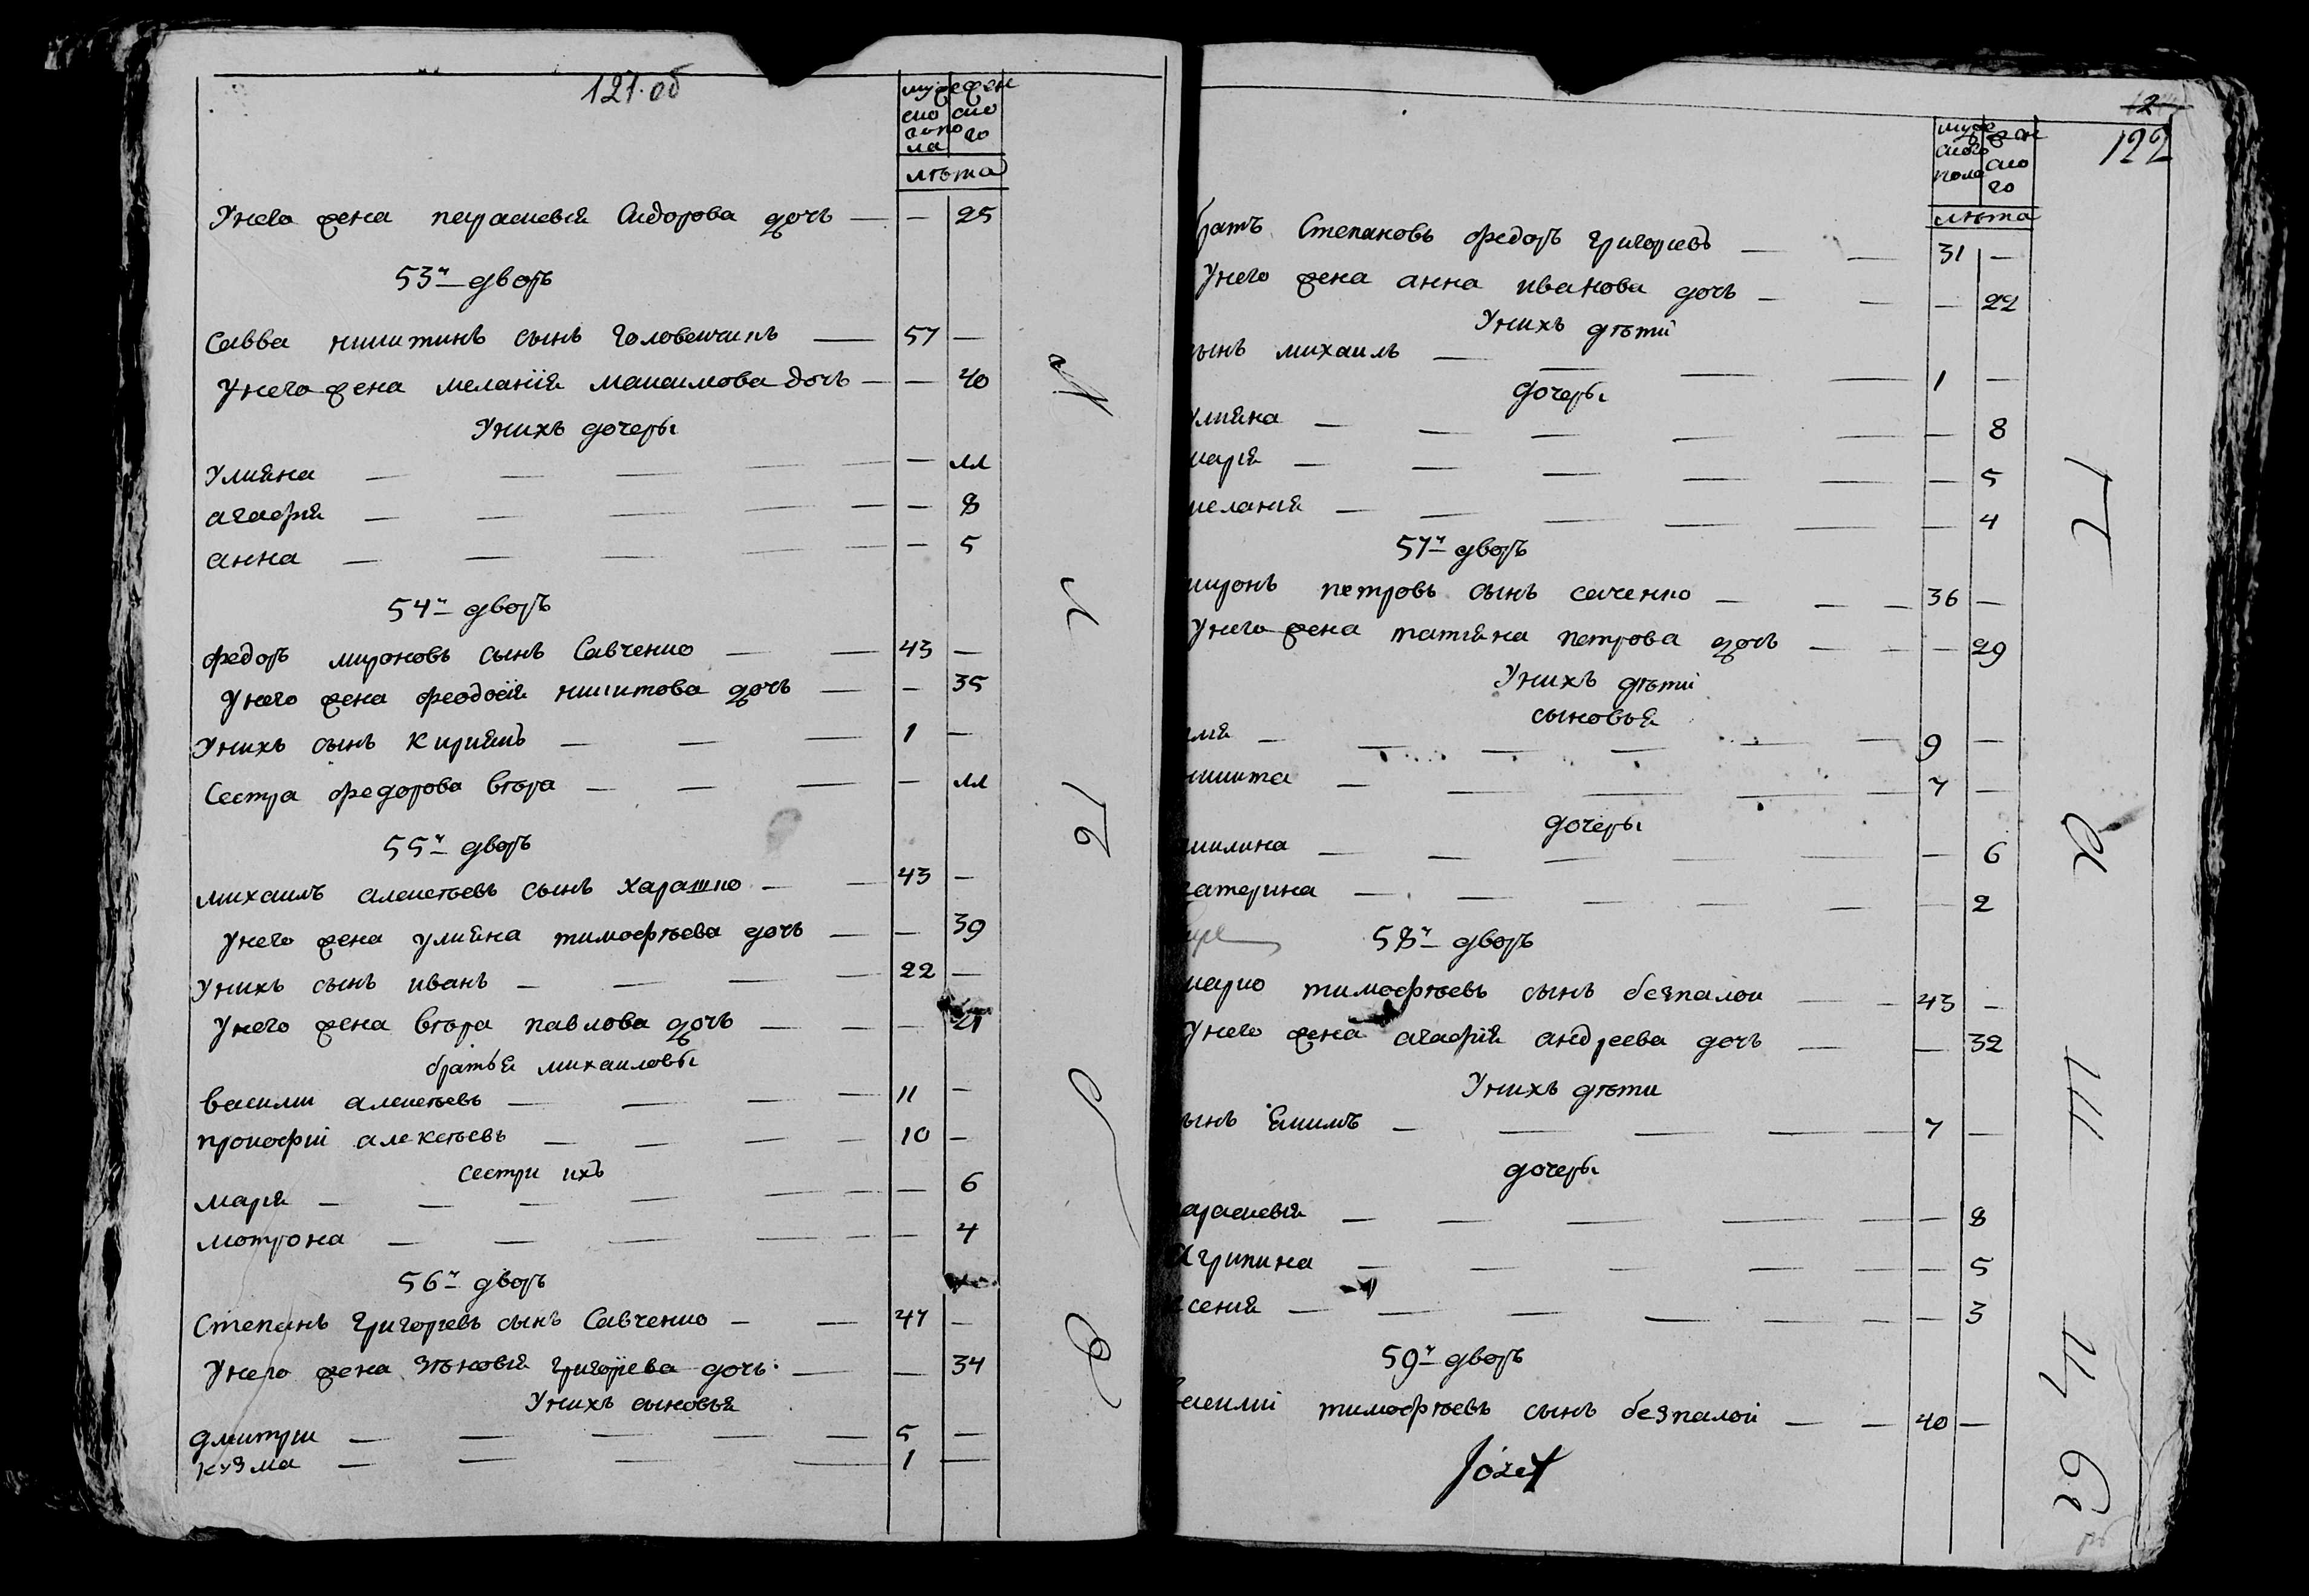 121 об
мужеско го пола
женско го
лѣта
У него жена параскевія Сидорова дочь — — 25
53й дворъ
Савва никитинъ сынъ Головенчинъ — 57 —
У него жена меланія макаимова дочь — — 40
У нихъ дочеры
Улияна — — — — — — 11
агафія — — — — — — 8
анна — — — — — — 5
54й дворъ
федоръ мироновъ сынъ Савченко — — 43 —
У него жена феодосія никитова дочь — — 35
У нихъ сынъ Кириякъ — — — 1 —
Сестра федорова вѣра — — — — 11
55й дворъ
михаилъ алексѣевъ сынъ харашко — — 43 —
У него жена улияна тимофѣева дочь — — 39
У нихъ сынъ иванъ — — — — 22 —
У него жена вѣра павлова дочь — — — 21
братья михаиловы
василии алексѣевъ — — — — 11 —
прокофій алексѣевъ — — — — 10 —
сестри ихъ
марія — — — — — — — 6
мотрона — — — — — — 4
56й дворъ
Степанъ григоріевъ сынъ Савченко — — 47 —
У него жена Зѣновія григорїева дочь — — 34
У нихъ сыновья
дмитріи — — — — — 5 —
кузма — — — — 1 —
122
мужеского пола
женско го
лѣта
братъ Степановъ федоръ григорıевъ — — 31 —
У него жена анна иванова дочь — — — 22
У нихъ дѣти
сынъ михаилъ — — — — 1 —
дочеры
улияна — — — — — — 8
марія — — — — — — 5
меланія — — — — — — 4
57й дворъ
миронъ петровъ сынъ саченко — — — 36 —
У него жена татіяна петрова дочь — — — 29
У нихъ дѣти
сыновья
илія — — — — — — 9 —
никита — — — — — 7 —
дочеры
акилина — — — — — — 6
катерина — — — — — — 2
58й дворъ
марко тимофѣевъ сынъ безпалои — — 43 —
У него жена агафія андреева дочь — — 32
У нихъ дѣти
сынъ Якимъ — — — — — 7 —
дочеры
параскевія — — — — — — 8
Агрипина — — — — — — 5
ксенія — — — — — — — 3
59й дворъ
василій тимофѣевъ сынъ безпалои — — 40 —
Józef